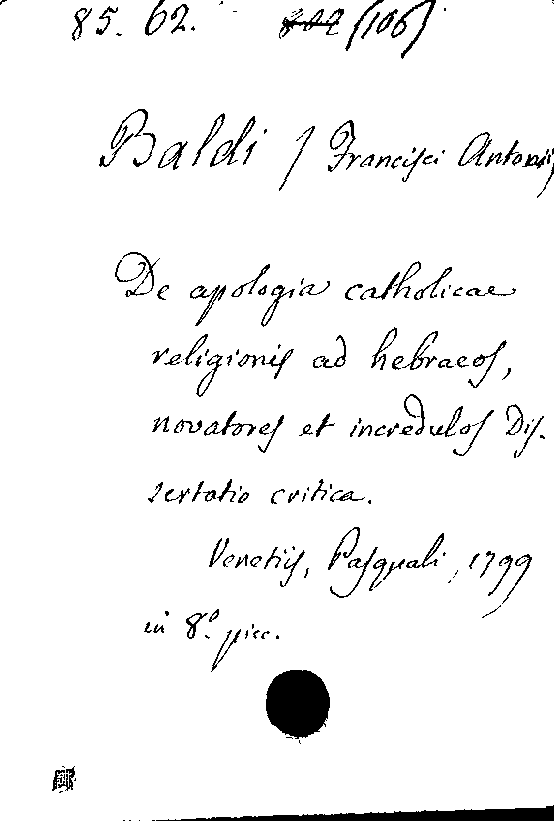 85. 62. 802 (106)
Baldi / Francisci Antonii,
De apologia catholicae
religionis ad hebraeos,
novatores et incredulos Dis-
sertatio critica.
Venetiis, Pasquali, 1799
in 8.º picc.